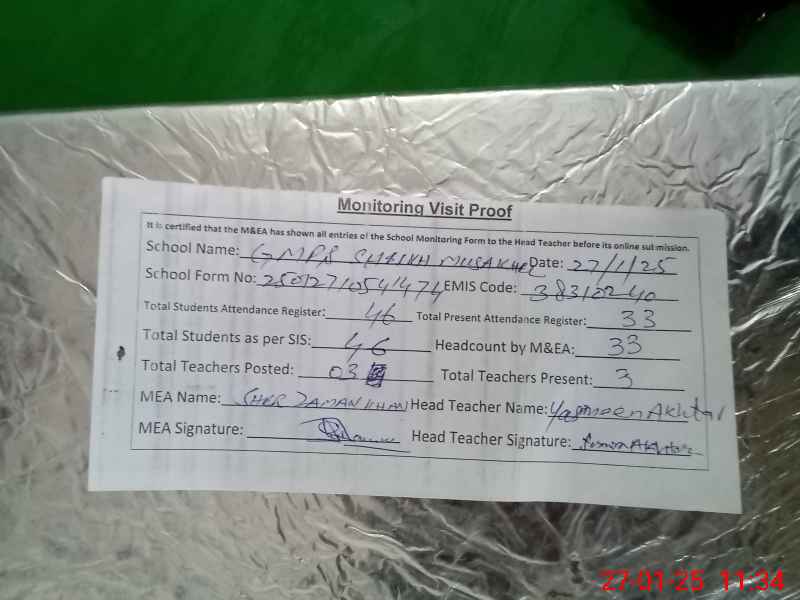 Monitoring Visit Proof
It is certified that the M&EA has shown all entries of the School Monitoring Form to the Head Teacher before its online submission.
School Name: GMPS SHAIKH MUSA KHEL Date: 27/1/25
School Form No: EMIS Code: 38310240
Total Students Attendance Register: 46 Total Present Attendance Register: 33
Total Students as per SIS: 46 Headcount by M&EA: 33
Total Teachers Posted: 03 Total Teachers Present: 3
MEA Name: SHER ZAMAN KHAN Head Teacher Name: Yasmeen Akhtar
MEA Signature: Head Teacher Signature:
27-01-25 11:34